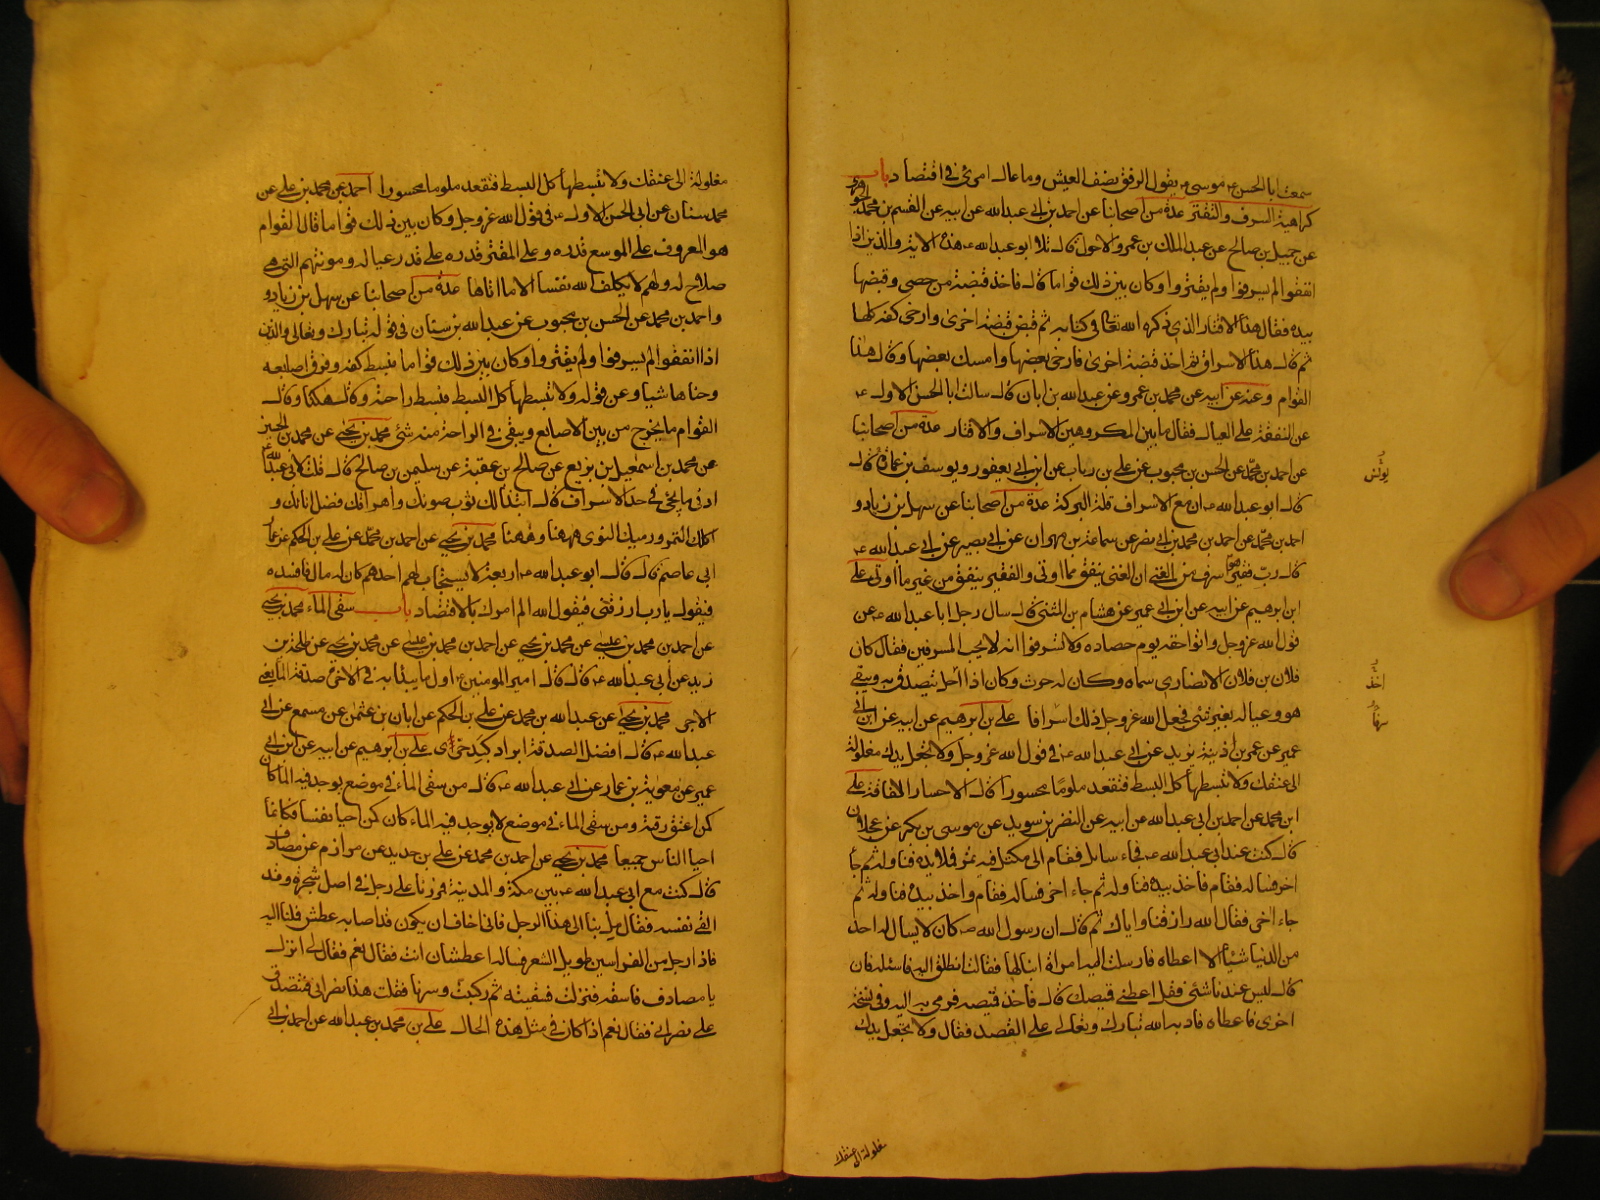 سمعت ابا الحسن موسى ع يقول الرفق نصف العيش وما عال امرئ في اقتصاد باب
كراهية السرف والتقتير عدة من اصحابنا عن احمد بن ابي عبد الله عن ابيه عن القسم بن محمد الجوهري
عن جميل بن صالح عن عبد الملك بن عمرو الاحول قال تلا ابو عبد الله ع هذه الاية والذين اذا
انفقوا لم يسرفوا ولم يقتروا وكان بين ذلك قواما قال فاخذ قبضة من حصى وقبضها
بيده فقال هذا الاقتار الذي ذكره الله تعالى في كتابه ثم قبض قبضة اخرى وارخى كفه كلها
ثم قال هذا الاسراف ثم اخذ قبضة اخرى فارخى بعضها وامسك بعضها وقال هذا
القوام وعنه عن ابيه عن محمد بن عمرو عن عبد الله بن ابان قال سالت ابا الحسن الاول ع
عن النفقة على العيال فقال ما بين المكروهين الاسراف والاقتار عدة من اصحابنا
عن احمد بن محمد عن الحسن بن محبوب عن علي بن رياب عن ابن ابي يعفور ويوسف بن عمارة قال
قال ابو عبد الله ع ان مع الاسراف قلة البركة عدة من اصحابنا عن سهل بن زياد و
احمد بن محمد عن احمد بن محمد بن ابي نصر عن سماعة بن مهران عن ابي بصير عن ابي عبد الله ع
قال رب فقير هو اسرف من الغني ان الغني ينفق مما اوتي والفقير ينفق من غير ما اوتي علي
ابن ابرهيم عن ابيه عن ابن ابي عمير عن هشام بن المثنى قال سال رجل ابا عبد الله ع عن
قول الله عز وجل واتوا حقه يوم حصاده ولا تسرفوا انه لا يحب المسرفين فقال كان
فلان بن فلان الانصاري سماه وكان له حرث وكان اذا اخذ يتصدق به ويبقى
هو وعياله بغير شئ فجعل الله عز وجل ذلك اسرافا علي بن ابرهيم عن ابيه عن ابن ابي
عمير عن عمر بن اذينة يزيد عن ابي عبد الله ع في قول الله عز وجل ولا تجعل يدك مغلولة
الى عنقك ولا تبسطها كل البسط فتقعد ملوما محسورا قال الاحسار الفاقة علي
ابن محمد عن احمد بن ابي عبد الله عن ابيه عن النضر بن سويد عن موسى بن بكر عن عجلان
قال كنت عند ابي عبد الله ع فجاء سائل فقام الى مكتل فيه تمر فملا يده فناوله ثم جاء
اخر فساله فقام فاخذ بيده فناوله ثم جاء اخر فساله فقام واخذ بيده فناوله ثم
جاء اخر فقال الله رازقنا واياك ثم قال ان رسول الله ص كان لا يساله احد
من الدنيا شيئا الا اعطاه فارسلت اليه امراة ابنا لها فقالت انطلق اليه فاسئله فان
قال ليس عندنا شئ فقل اعطني قميصك قال فاخذ قميصه فرمى به اليه وفي نسخة
اخرى فاعطاه فادبه الله تبارك وتعالى على القصد فقال ولا تجعل يدك
يونس
اخذ
مغلولة الى عنقك
مغلولة الى عنقك ولا تبسطها كل البسط فتقعد ملوما محسورا احمد عن محمد بن علي عن
محمد سنان عن ابي الحسن الاول ع في قول الله عز وجل وكان بين ذلك قواما قال القوام
هو المعروف على الموسع قدره وعلى المقتر قدره على قدر عياله ومونتهم التي هي
صلاح له ولهم لا يكلف الله نفسا الا ما اتاها عدة من اصحابنا عن سهل بن زياد و
واحمد بن محمد عن الحسن بن محبوب عن عبد الله بن سنان في قوله تبارك وتعالى والذين
اذا انفقوا لم يسرفوا ولم يقتروا وكان بين ذلك قواما فبسط كفه وفرق اصابعه
وحناها شيا وعن قوله ولا تبسطها كل البسط فبسط راحته وقال هكذا وقال
القوام ما يخرج من بين الاصابع ويبقى في الراحة منه شئ محمد بن يحيى عن محمد بن الحسين
عن محمد بن اسمعيل بن بزيع عن صالح بن عقبة عن سليمن بن صالح قال قلت لابي عبد الله ع
ادنى ما يجئ في حد الاسراف قال ابتذالك ثوب صونك واهراقك فضل انائك و
اكلك التمر ورميك النوى ههنا وههنا محمد بن يحيى عن احمد بن محمد عن علي بن الحكم عن عمار
ابي عاصم قال قال ابو عبد الله ع اربعة لا يستجاب لهم احدهم كان له مال فافسده
فيقول يا رب ارزقني فيقول الله الم امرك بالاقتصاد باب سقى الماء محمد بن يحيى
عن احمد بن محمد بن عيسى عن محمد بن يحيى عن احمد بن محمد بن عيسى عن محمد بن يحيى عن طلحة بن
زيد عن ابي عبد الله ع قال قال امير المومنين ع اول ما يبدا به في الاخرة صدقة الماء يعني
الاجر محمد بن يحيى عن عبد الله بن محمد عن علي بن الحكم عن ابان بن عثمن عن مسمع عن ابي
عبد الله ع قال افضل الصدقة ابراد كبد حرى علي بن ابرهيم عن ابيه عن ابن ابي
عمير عن معوية بن عمار عن ابي عبد الله ع قال من سقى الماء في موضع يوجد فيه الماء كان
كمن اعتق رقبة ومن سقى الماء في موضع لا يوجد فيه الماء كان كمن احيا نفسا فكانما
احيا الناس جميعا محمد بن يحيى عن احمد بن محمد عن علي بن حديد عن مرازم عن مصادف
قال كنت مع ابي عبد الله ع بين مكة والمدينة فمررنا على رجل في اصل شجرة وقد
القى نفسه فقال مل بنا الى هذا الرجل فاني اخاف ان يكون قد اصابه عطش فملنا اليه
فاذا رجل من الفراسين طويل الشعر فساله اعطشان انت فقال نعم فقال لي انزل
يا مصادف فاسقه فنزلت فسقيته ثم ركبت وسرنا فقلت هذا نصراني فتتصدق
على نصراني فقال نعم اذا كان في مثل هذه الحال علي بن محمد بن عبد الله عن احمد بن ابي